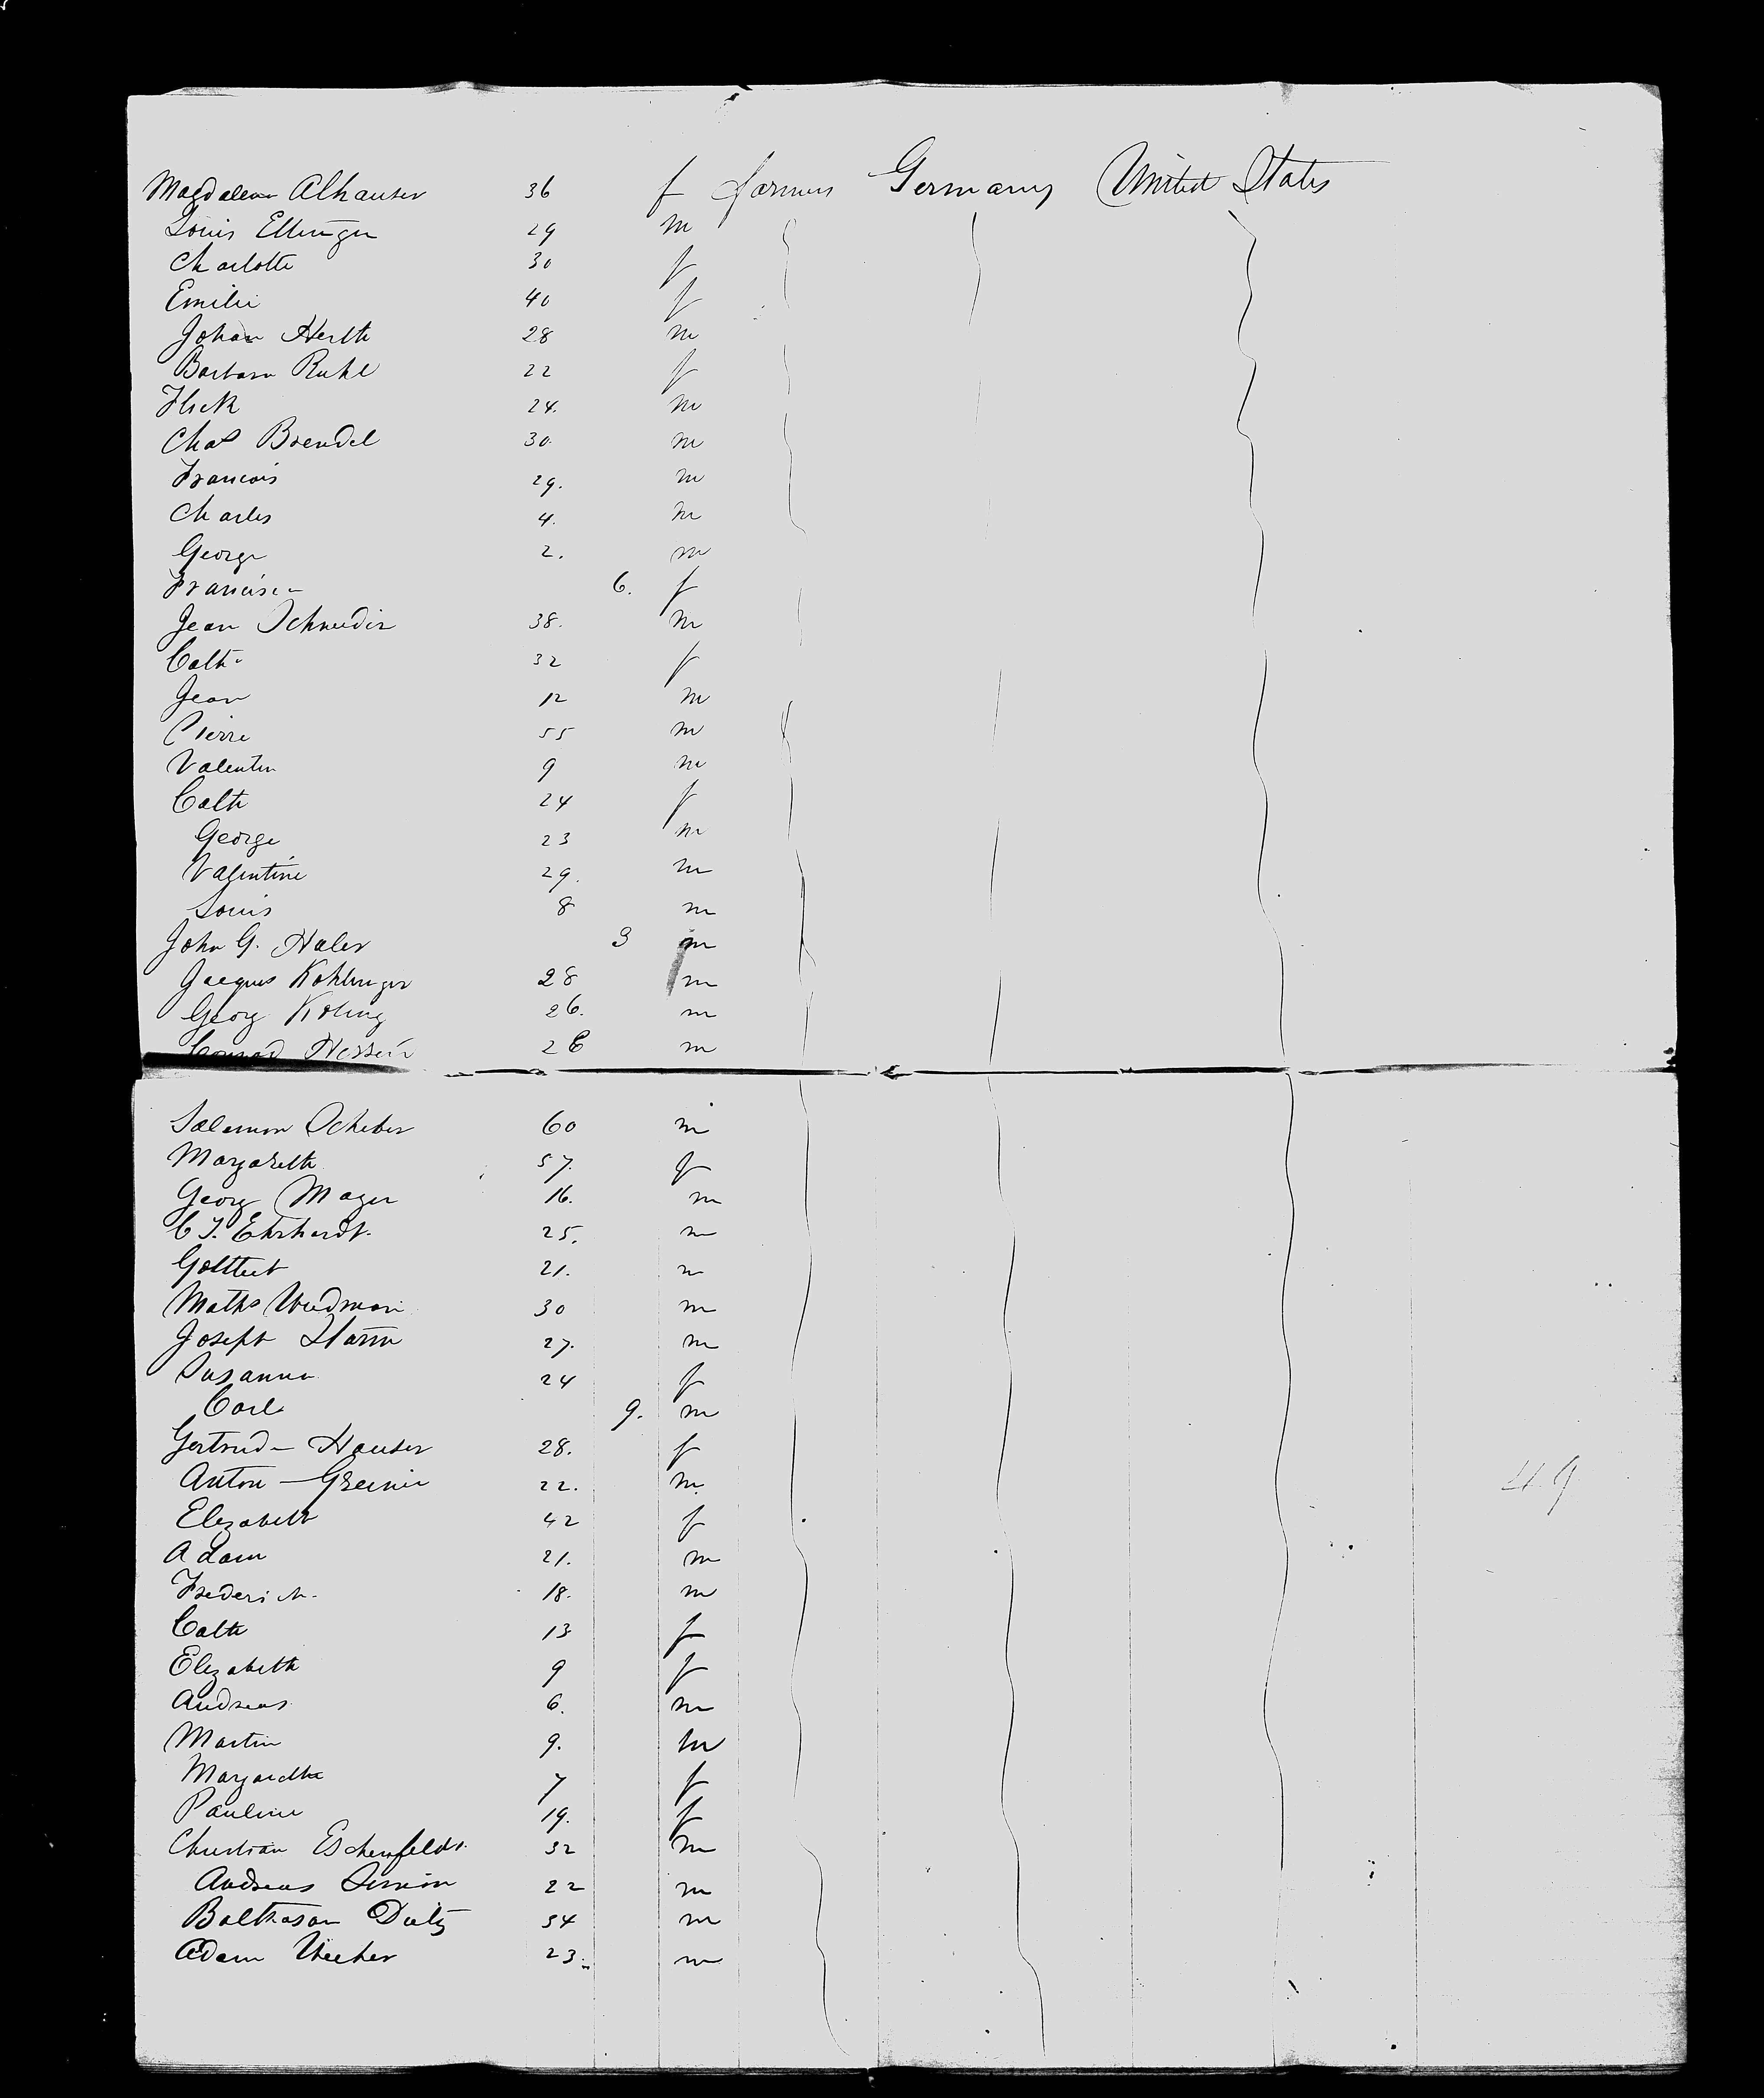 Magdalena Alhauser 36 f farmer Germany United States
Louis Ettinger 29 m
Charlotte 30 f
Emilie 40 f
Johan Herth 28 m
Barbara Ruhl 22 f
24. m
Chas Brendel 30 m
Francois 29. m
Charles 4. m
George 2. m
Francisca 6. f
Jean Schneider 38. m
Cath 32 f
Jean 12 m
Pierre 55 m
Valentin 9 m
Cath 24 f
George 23 m
Valentine 29. m
Louis 8 m
John G. Haler 3 m
Jacques 28 m
Georg Koling 26. m
Conrad 28 m
Salomon Scheber 60 m
Margareth 57. f
Georg Mager 16. m
C F. Ehrhardt. 25. m
Gottleib 21. m
Maths Wiedman 30 m
Joseph Stamm 27. m
Susanna 24 f
Carl 9. m
Gertrud Hauser 28. f
Anton Greiner 22. m
Elizabeth 42 f
Adam 21. m
Frederich 18. m
Cath 13 f
Elizabeth 9 f
Andreas 6. m
Martin 9. m
Margaretha 7 f
Pauline 19. f
Christian Eschenfeldt 32 m
Andreas Simon 22 m
Balthasar Dietz 34 m
Adam 23. m
49